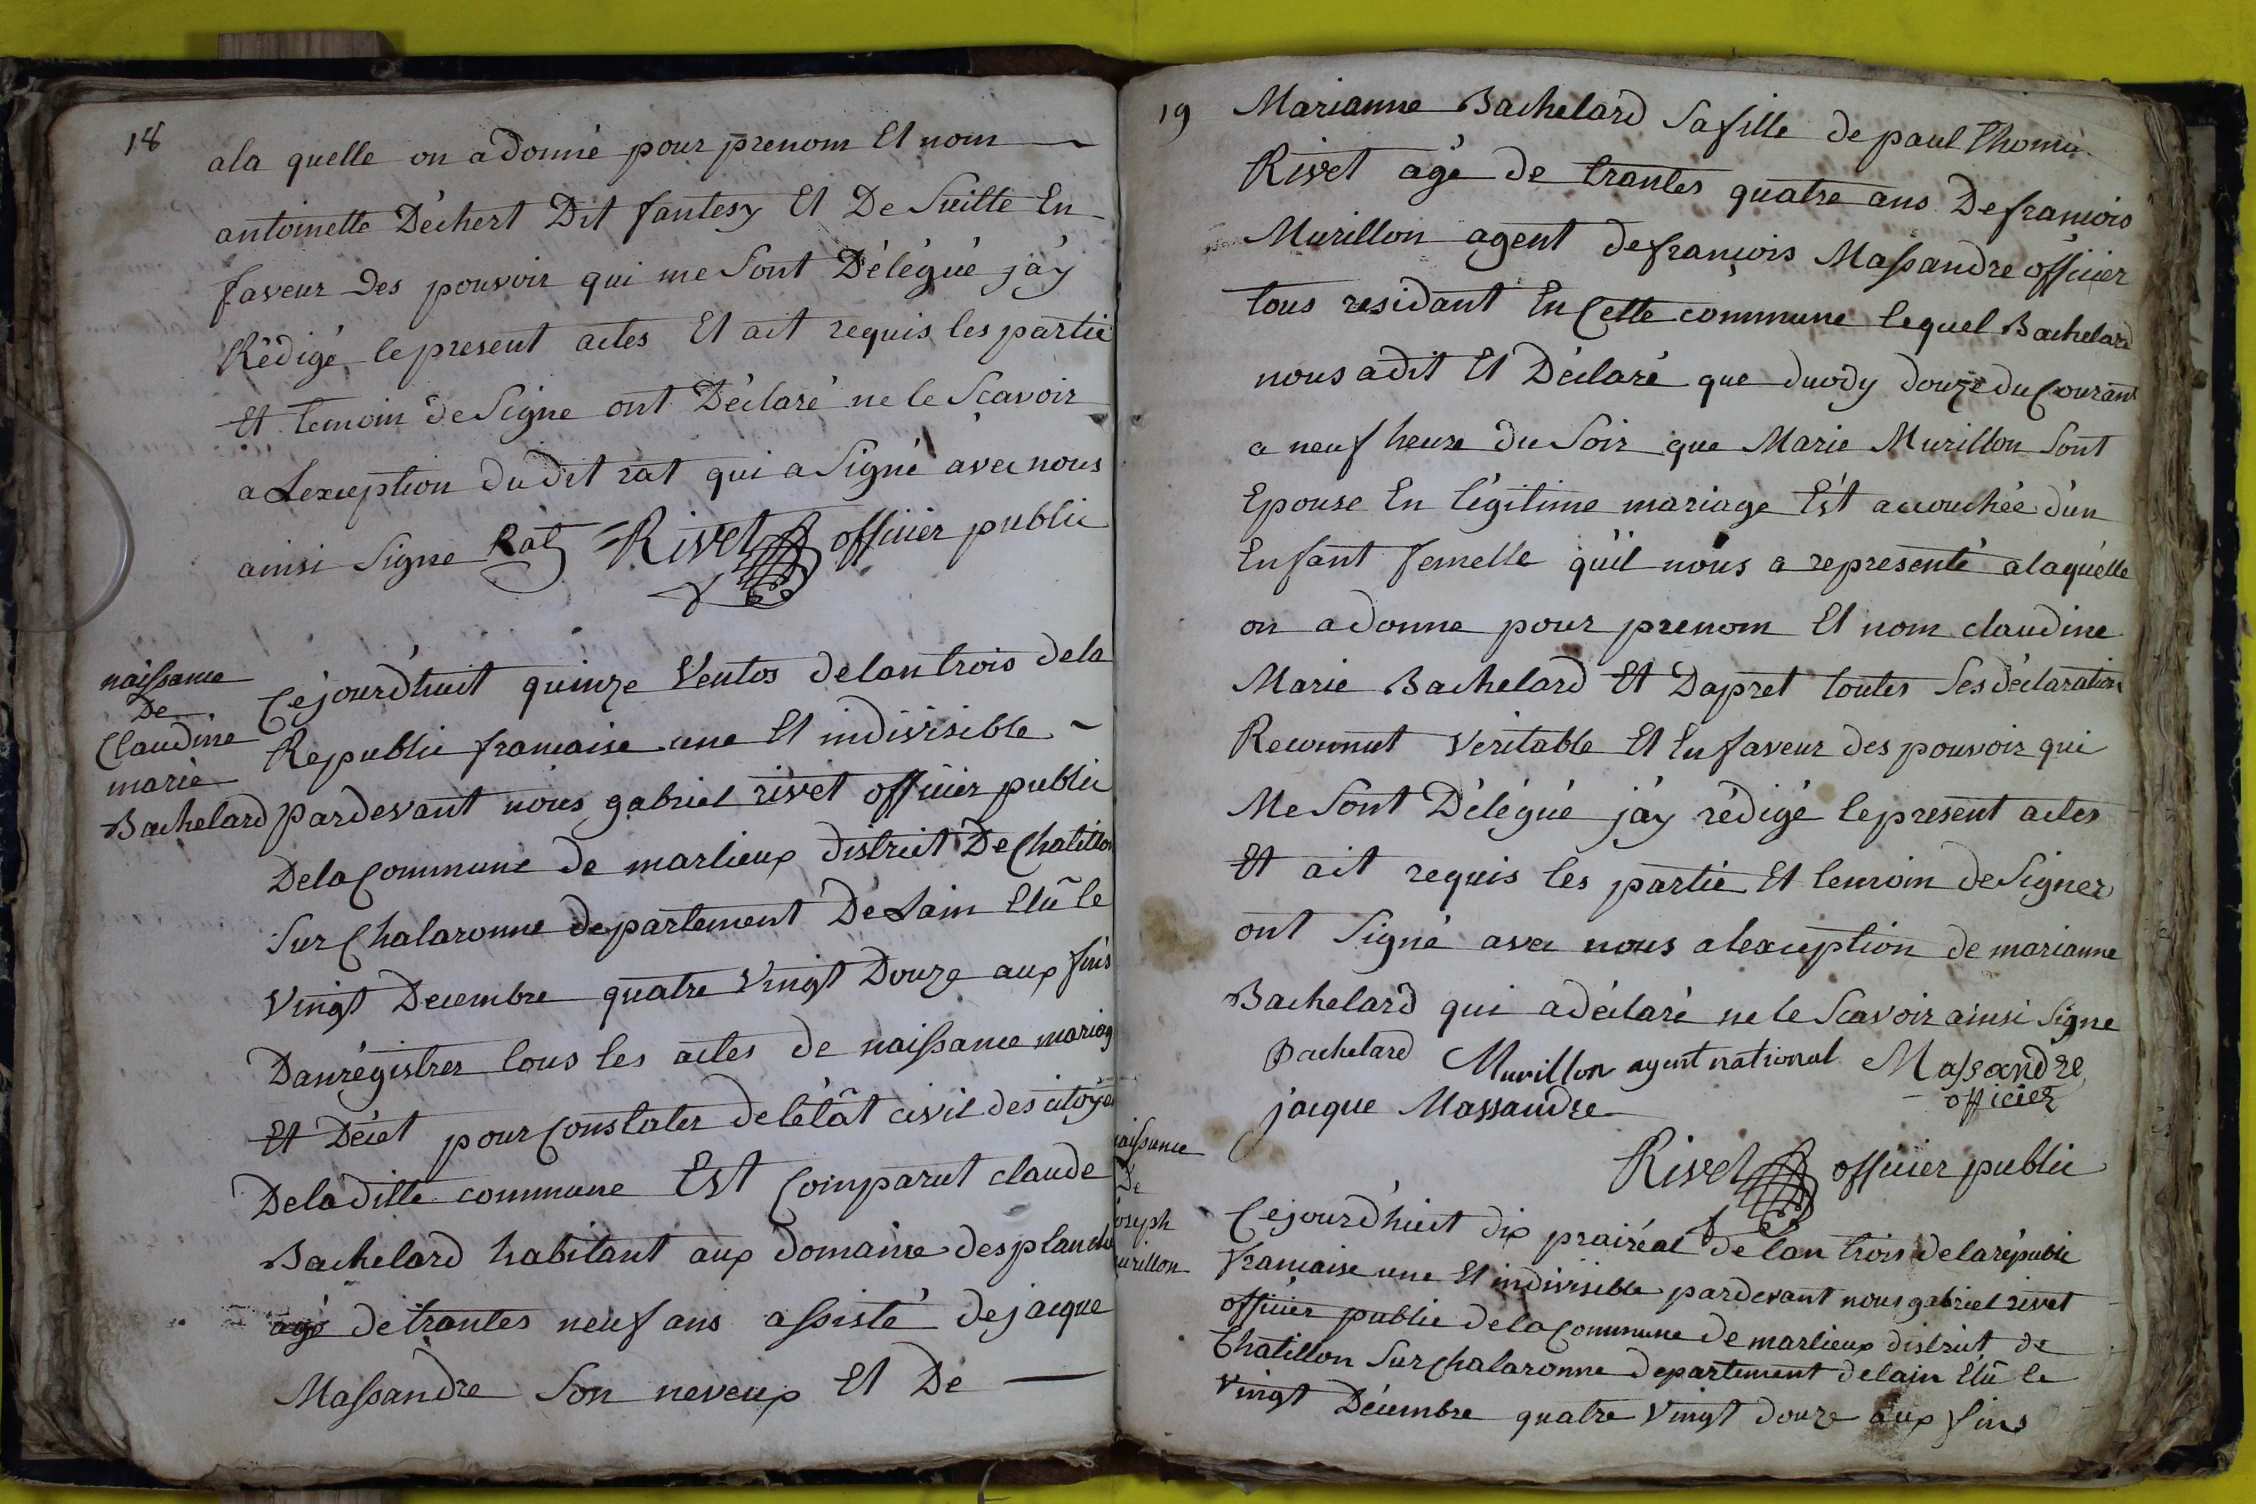 18
ala quelle on a donné pour prenom Et nom
antoinette Déchert Dit fantesy Et De Suitte En
faveur Des pouvoir qui me Sont Délégué j'ay
Rédigé le present actes Et ait requis les partie
Et temoin de Signe ont Déclaré ne le Scavoir
a Lexception du dit rat qui a Signé avec nous
ainsi Signe Rat = Rivet officier public
naissance
De
Claudine
marie
Bachelard
Céjourd'huit quinze Ventos de lan trois de la
Republic francaise une Et indivisible
pardevant nous gabriel rivet officier public
De la Commune de marlieux district De Chatillon
Sur Chalaronne departement De Lain Elû le
Vingt Decembre quatre Vingt Douze aux fins
Danrégistrer tous les actes de naissance mariag
Et Décet pour Constater de létât civil des citoyen
De la ditte commune Est Comparut claude
Bachelard habitant aux domaine des planche
agé de trantes neuf ans assisté de jacque
Massandre Son neveux Et De
19
Marianne Bachelard Sa fille de paul Thoma
Rivet agé de trantes quatre ans De francois
Murillon agent de francois Massandre officier
tous residant En Cette commune lequel Bachelard
nous a dit Et Déclaré que duody douze du Courant
a neuf heure du Soir que Marie Murillon Sont
Epouse En légitime mariage Est accouchée d'un
Enfant femelle qu'il nous a representé a laquelle
on a donne pour prenom Et nom claudine
Marie Bachelard Et Dapret toutes Ses déclaration
Reconnut Veritable Et En faveur des pouvoir qui
Me Sont Délégué j'ay rédigé le present actes
Et ait requis les partie Et temoin de Signer
ont Signé avec nous a lexception de marianne
Bachelard qui a déclaré ne le Scavoir ainsi Signe
Bachelard Murillon agent national Massandre
jacque Massandre officier
Rivet officier public
aissance
De
oseph
urillon
Cejourd'huit dix prairéal de lan trois de la républi
francaise une Et indivisible pardevant nous gabriel rivet
officier public de la Commune de marlieux district de
Chatillon Sur Chalaronne departement de lain Elû le
Vingt Décembre quatre Vingt douze aux fins